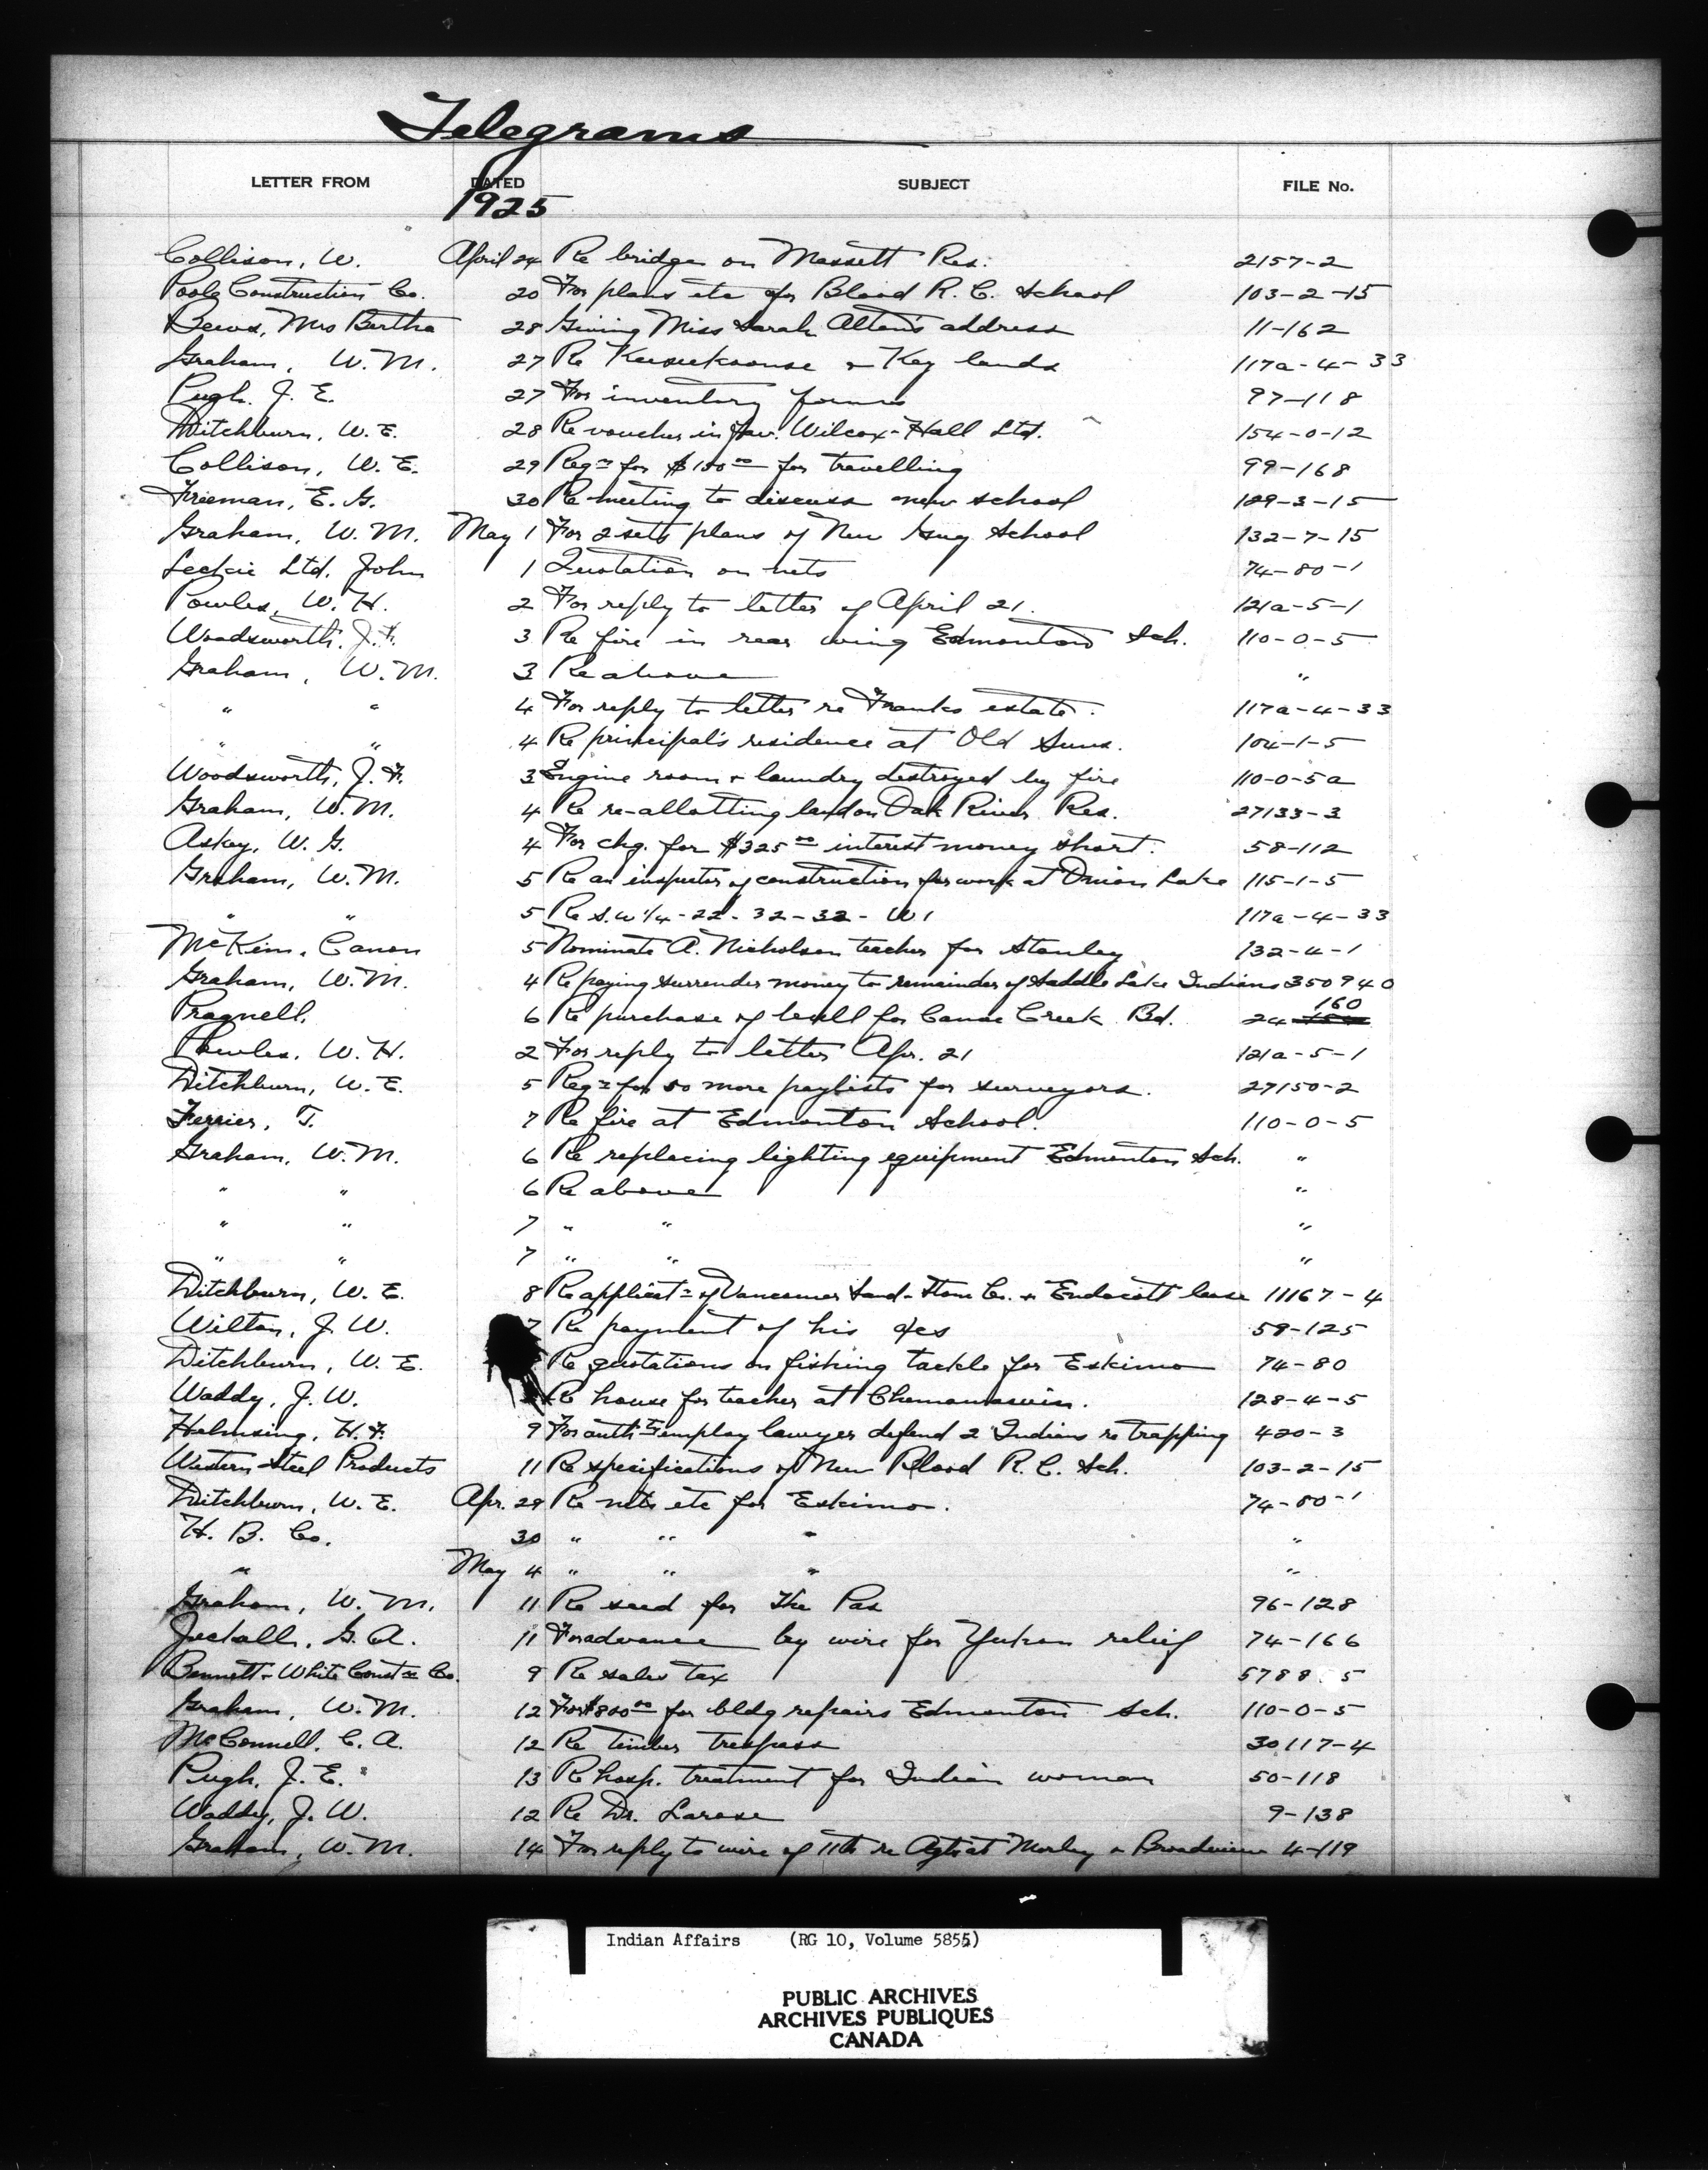 Telegrams
LETTER FROM DATED SUBJECT FILE No.
1925
Collison, W. April 24 Re bridge on Massett Res. 2157-2
Poole Construction Co. 20 For plans etc for Blood R. C. School 103-2-15
Bews, Mrs Bertha 28 Giving Miss Sarah Alten's address 11-162
Graham, W. M. 27 Re Keeseekoouse & Key lands 117a-4-33
Pugh. J. E. 27 For inventory forms 97-118
Ditchburn, W. E. 28 Re voucher in fav. Wilcox-Hall Ltd. 154-0-12
Collison, W. E. 29 Reqn for $100 00 for travelling 99-168
Freeman, E. G. 30 Re meeting to discuss new school 129-3-15
Graham, W. M. May 1 For 2 sets plans of New School 132-7-15
Leckie Ltd. John 1 Quotation on nets 74-80-1
Powles, W. H. 2 For reply to letter of April 21. 121a-5-1
Woodsworth, J. F. 3 Re fire in rear wing Edmonton Sch. 110-0-5
Graham, W. M. 3 Re above "
" " 4 For reply to letter re Franks estate. 117a-4-33
" " 4 Re principal's residence at Old Suns. 104-1-5
Woodsworth, J. F. 3 Engine room & laundry destroyed by fire 110-0-5a
Graham, W. M. 4 Re re-allotting land on Oak River Res. 27133-3
Askey, W. G. 4 For chq. for $325 00 interest money short. 58-112
Graham, W. M. 5 Re an inspector of construction for work at Onion Lake 115-1-5
" " 5 Re S.W 1/4 - 22 - 32 - 32 - W 1 117a-4-33
McKim, Canon 5 Nominate A. Nicholson teacher for Stanley 132-4-1
Graham, W. M. 4 Re paying surrender money to remainder of Saddle Lake Indians 350940
Pragnell, 6 Re purchase of bull for Canoe Creek Bd. 24-160
Powles, W. H. 2 For reply to letter Apr. 21 121a-5-1
Ditchburn, W. E. 5 Reqn for 50 more paylists for surveyors. 27150-2
Ferrier, T. 7 Re fire at Edmonton School. 110-0-5
Graham, W. M. 6 Re replacing lighting equipment Edmonton Sch. "
" " 6 Re above "
" " 7 " " "
" " 7 " " "
Ditchburn, W. E. 8 Re applicatn of Vancouver Sand-Stone Co. & Endacott lease 11167-4
Wilton, J. W. 7 Re payment of his a/cs 59-125
Ditchburn, W. E. Re quotations on fishing tackle for Eskimo 74-80
Waddy, J. W. Re house for teacher at Chemawawin. 128-4-5
Helmsing, H. F. 9 For auth to employ lawyer defend 2 Indians re trapping 420-3
Western Steel Products 11 Re specifications of New Blood R. C. Sch. 103-2-15
Ditchburn, W. E. Apr. 29 Re nets etc for Eskimo. 74-80-1
H. B. Co. 30 " " " "
" May 4 " " " "
Graham, W. M. 11 Re seed for The Pas 96-128
Jeckell, G. A. 11 For advance by wire for Yukon relief 74-166
Bennett & White Constn Co. 9 Re sales tax 5788 5
Graham, W. M. 12 For $800 00 for bldg repairs Edmonton Sch. 110-0-5
McConnell, C. A. 12 Re timber trespass 30117-4
Pugh, J. E. 13 Re hosp. treatment for Indian woman 50-118
Waddy, J. W. 12 Re Dr. Larose 9-138
Graham, W. M. 14 For reply to wire of 11th re Agts at Morley & Broadview 4-119
Indian Affairs (RG 10, Volume 5855)
PUBLIC ARCHIVES
ARCHIVES PUBLIQUES
CANADA